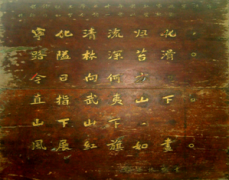 寧化清流归化。
路隘林深苔滑。
今日向何方
直指武夷山下。
山下山下
風展紅旗如畫。